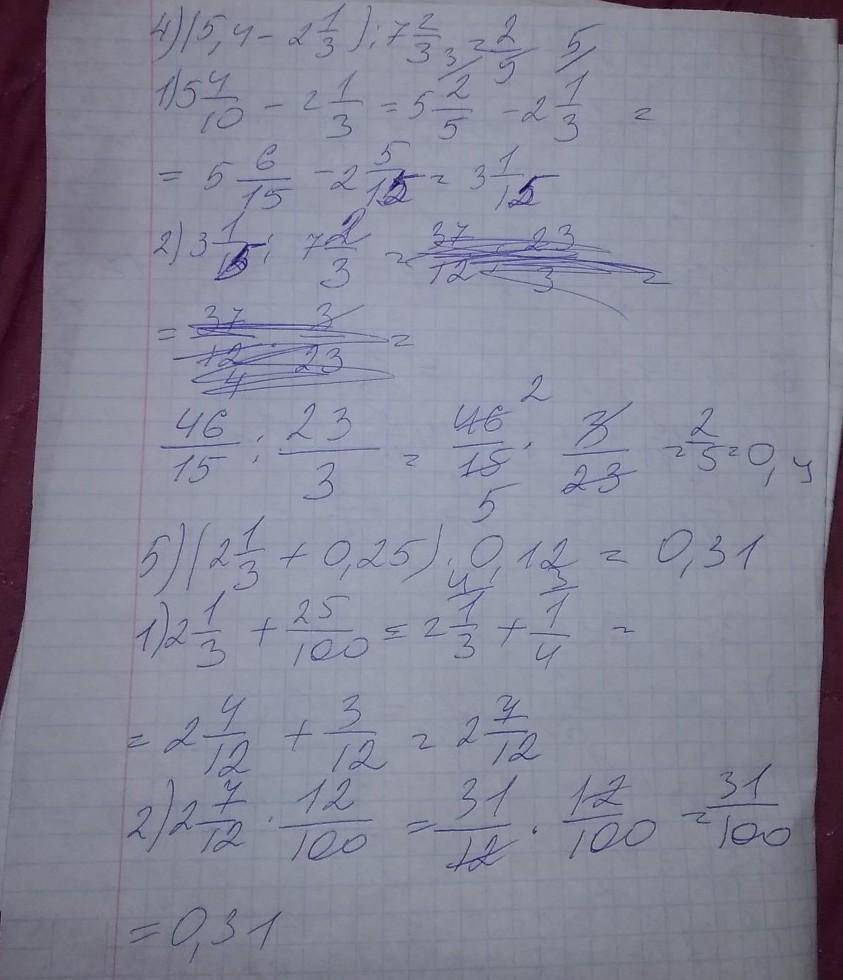 4) (5,4 - 2 1/3) : 7 2/3 = 2/5
1) 5 4/10 - 2 1/3 = 5 2/5 - 2 1/3 =
= 5 6/15 - 2 5/15 = 3 1/15
2) 3 1/15 : 7 2/3 =
=
46/15 : 23/3 = 46/15 · 3/23 = 2/5 = 0,4
5) (2 1/3 + 0,25) · 0,12 = 0,31
1) 2 1/3 + 25/100 = 2 1/3 + 1/4 =
= 2 4/12 + 3/12 = 2 7/12
2) 2 7/12 · 12/100 = 31/12 · 12/100 = 31/100
= 0,31